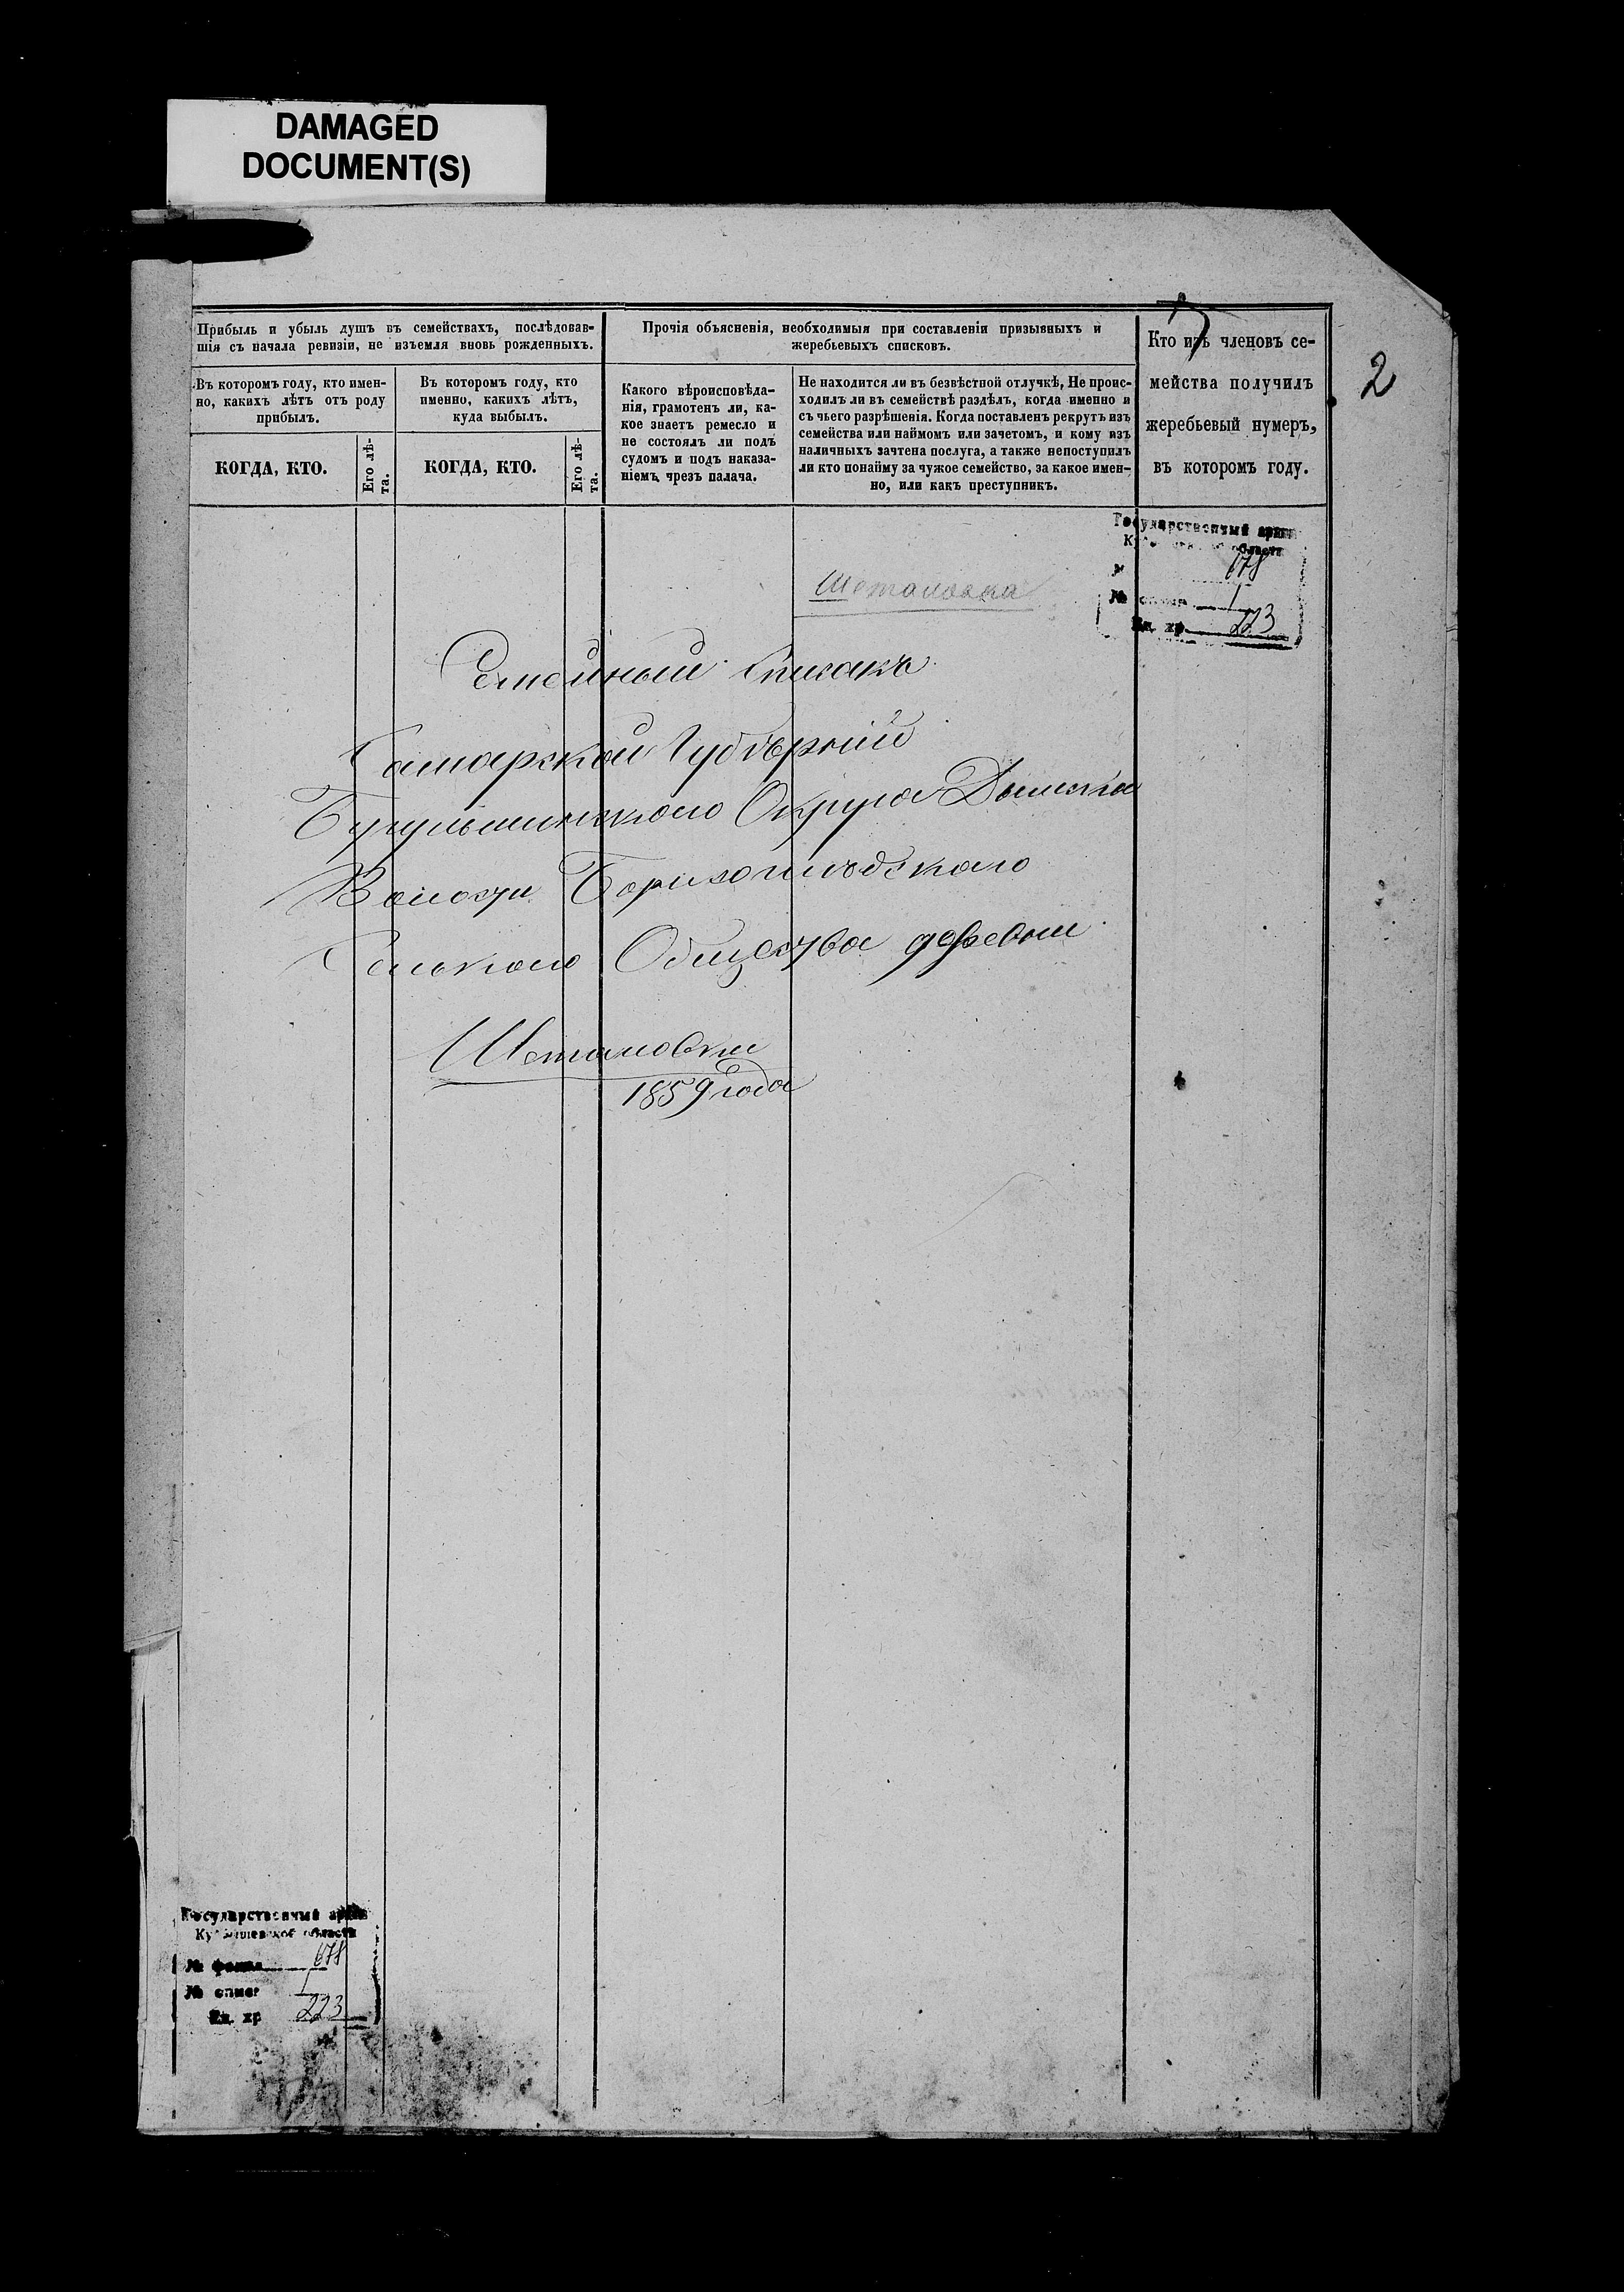 DAMAGED
DOCUMENT(S)
2
Прибыль и убыль душъ въ семействахъ, послѣдовав-
шія съ начала ревизіи, не изъемля вновь рожденныхъ.
Въ которомъ году, кто имен-
но, какихъ лѣтъ отъ роду
прибылъ.
КОГДА, КТО.
Его лѣ-
та.
Въ которомъ году, кто
именно, какихъ лѣтъ,
куда выбылъ.
КОГДА, КТО.
Его лѣ-
та.
Прочія объясненія, необходимыя при составленіи призывныхъ и
жеребьевыхъ списковъ.
Какого вѣроисповѣда-
нія, грамотенъ ли, ка-
кое знаетъ ремесло и
не состоялъ ли подъ
судомъ и подъ наказа-
ніемъ чрезъ палача.
Не находится ли въ безвѣстной отлучкѣ, Не проис-
ходилъ ли въ семействѣ раздѣлъ, когда именно и
съ чьего разрѣшенія. Когда поставленъ рекрутъ изъ
семейства или наймомъ или зачетомъ, и кому изъ
наличныхъ зачтена послуга, а также непоступилъ
ли кто понайму за чужое семейство, за какое имен-
но, или какъ преступникъ.
Кто изъ членовъ се-
мейства получилъ
жеребьевый нумеръ,
въ которомъ году.
Государственный архив
области
678
№ описи 1
Ед. хр. 223
Шеталовка
Семейный Списокъ
Самарской Губерніи
Бугульминскаго Округа Дымска
Волости Борисоглѣбскаго
Сельскаго Общества деревни
Шеталовки
1859 года
Государственный архив
Куйбышевской области
№ фонда 678
№ описи 1
Ед. хр 223